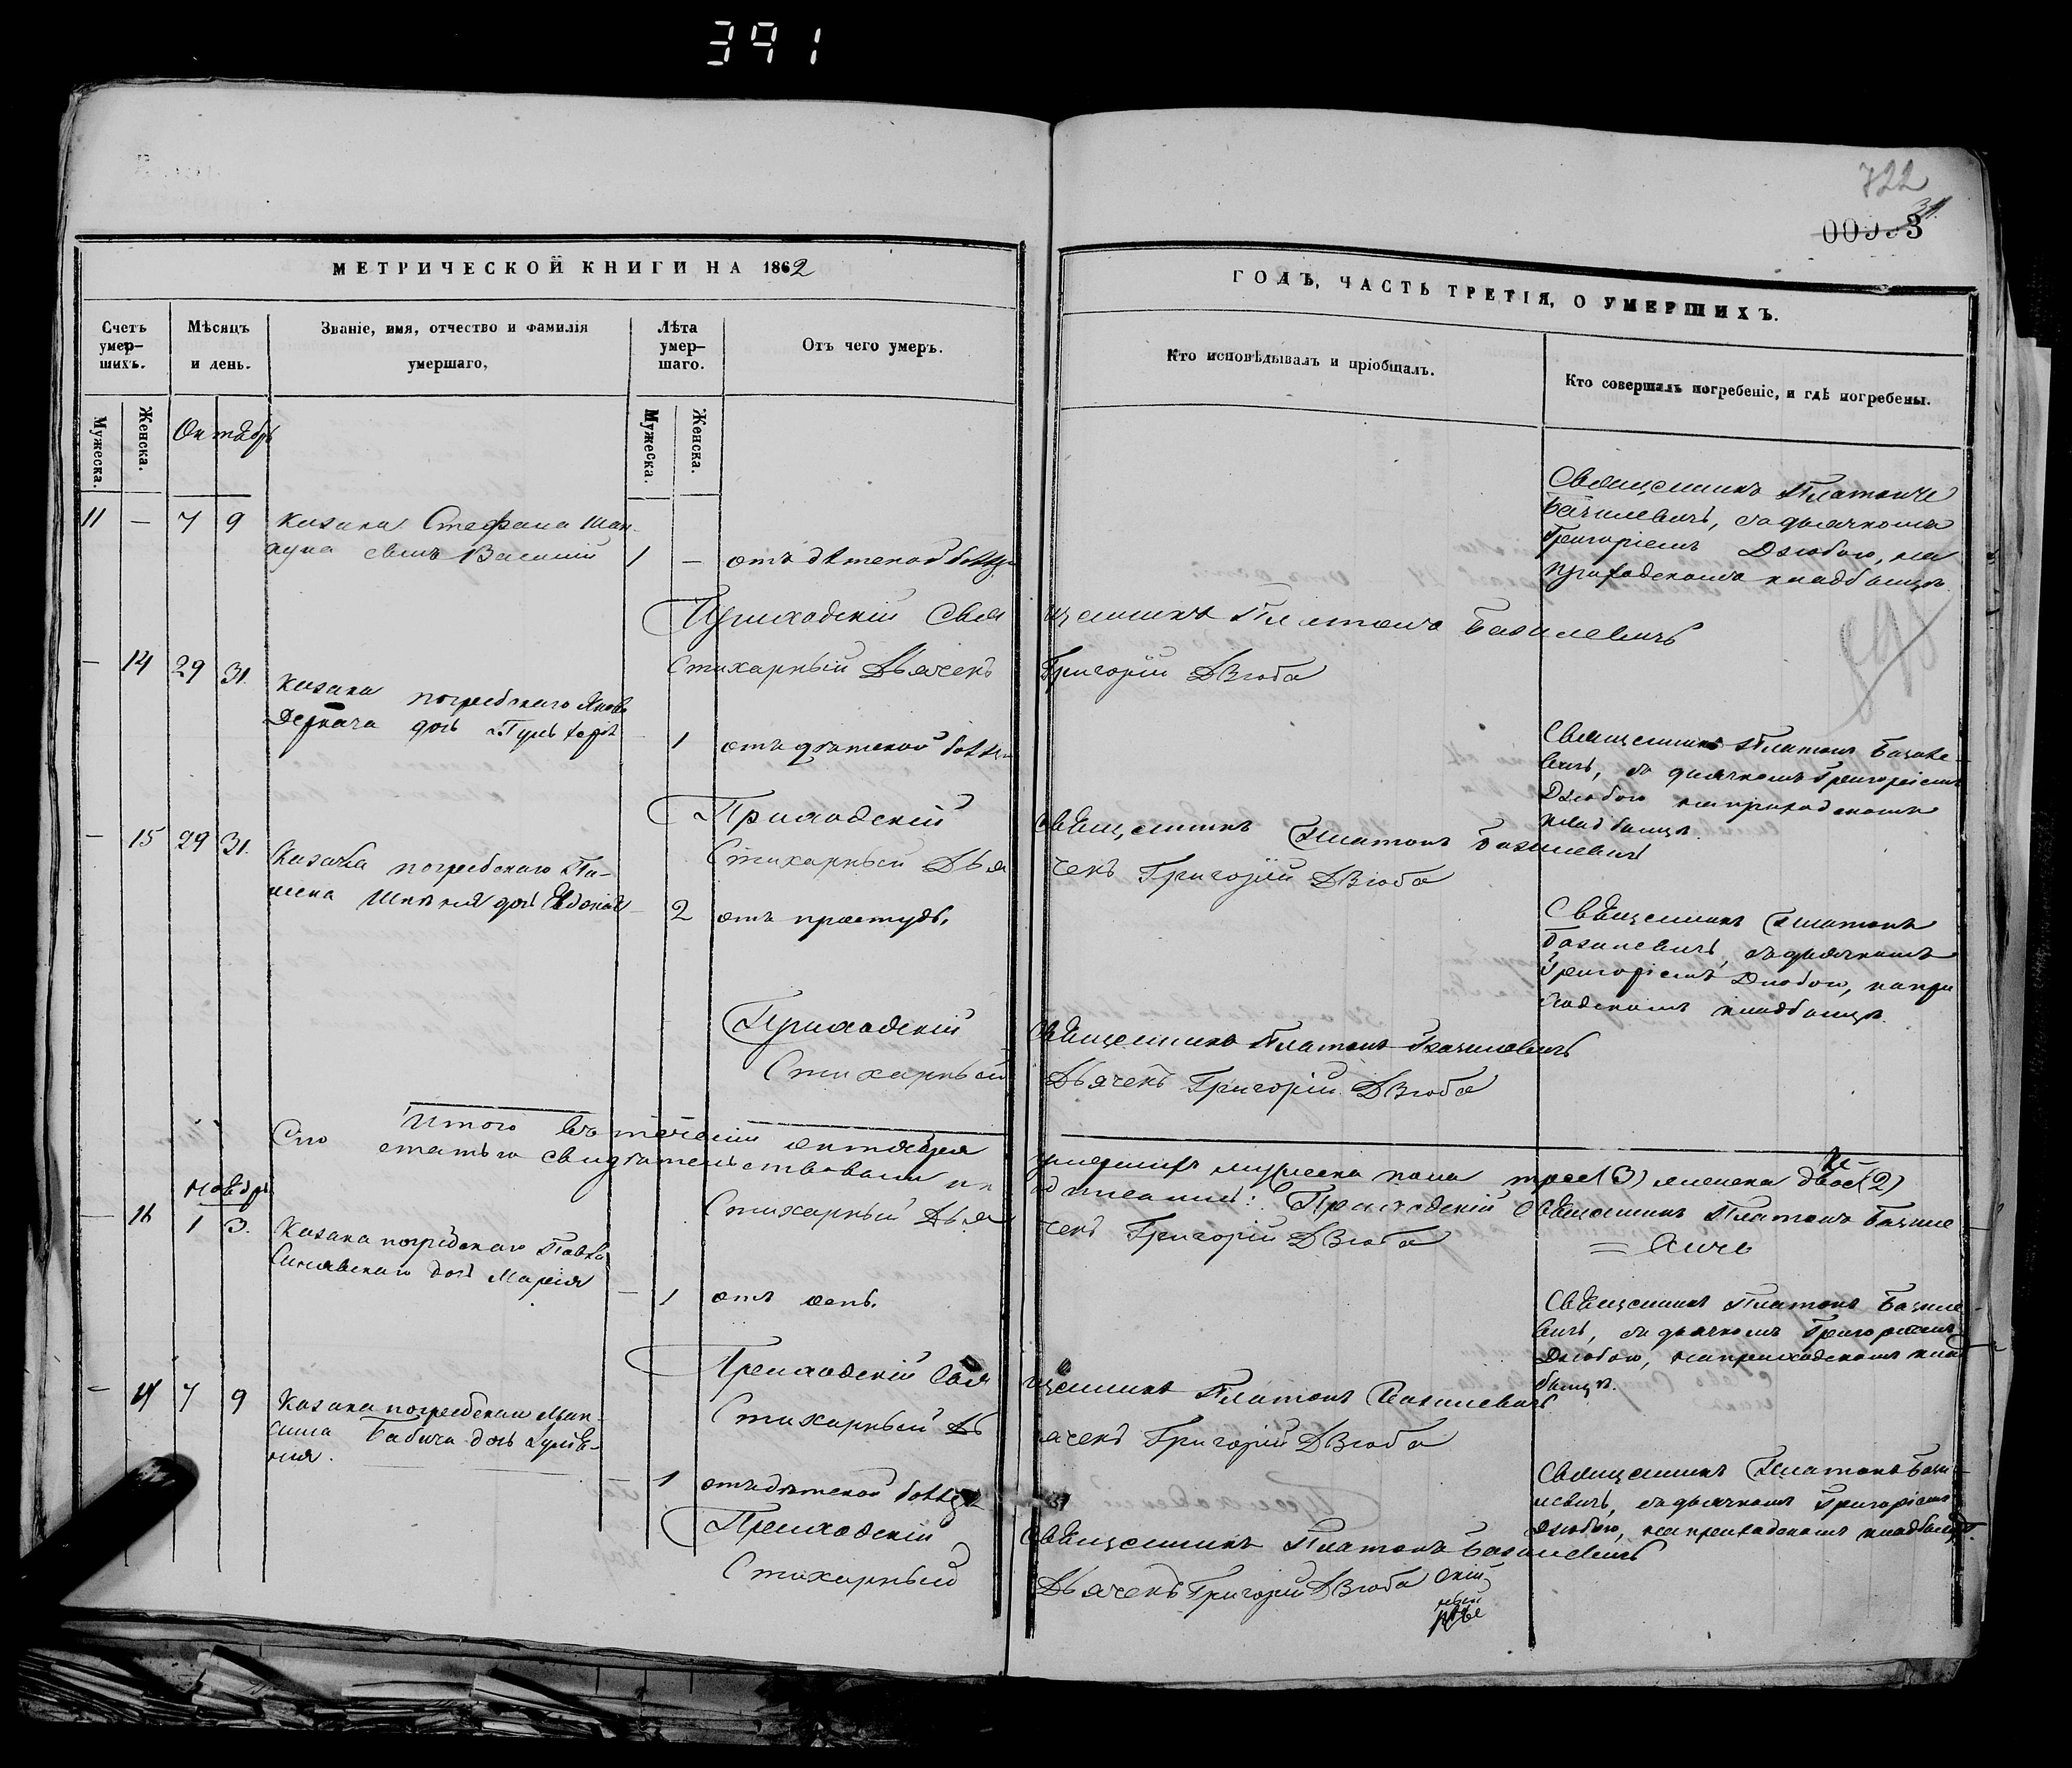 391
722
МЕТРИЧЕСКОЙ КНИГИ НА 1862
ГОДЪ, ЧАСТЬ ТРЕТІЯ, О УМЕРШИХЪ.
Счетъ умер-
шихъ.
Мѣсяцъ
и день.
Званіе, имя, отчество и фамилія
умершаго,
Лѣта
умер-
шаго.
Отъ чего умеръ.
Кто исповѣдывалъ и пріобщалъ.
Кто совершалъ погребеніе, и гдѣ погребены.
Мужеска.
Женска.
Октябрь
Мужеска.
Женска.
11 — 7 9 Козака Стефана
сынъ Василій 1 — отъ дѣтской
Священникъ Платонъ
Базилевичъ, съ дьячкомъ
Григоріемъ Дзюбою, на
приходскомъ кладбищѣ.
Приходскій Священникъ Платонъ Базилевичъ
Стихарный Дьячекъ Григорій Дзюба
— 14 29 31. Козака погребскаго
Деркача дочь 1 отъ дѣтской
Священникъ Платонъ Базиле-
вичъ, съ дьячкомъ Григоріемъ
Дзюбою на приходскомъ
кладбищѣ.
Приходскій Священникъ Платонъ Базилевичъ
Стихарный Дьячекъ Григорій Дзюба
— 15 29 31. Козака погребскаго
дочь Евдокія 2 отъ простуды.
Священникъ Платонъ
Базилевичъ, съ дьячкомъ
Григоріемъ Дзюбою, на при
ходскомъ кладбищѣ.
Приходскій Священникъ Платонъ Базилевичъ
Стихарный Дьячекъ Григорій Дзюба
Итого въ теченіи октября умершихъ мужеска пола трое (3) женска двое (2)
Сію статью свидѣтельствовали и подписали: Приходскій Священникъ Платонъ Базиле
= вичъ
Стихарный Дьячекъ Григорій Дзюба
Ноябрь
— 16 1 3. Козака погребскаго Павла
Синявскаго дочь Марія — 1 отъ оспы.
Священникъ Платонъ Базиле-
вичъ, съ дьячкомъ Григоріемъ
Дзюбою, на приходскомъ клад
бищѣ.
Приходскій Священникъ Платонъ Базилевичъ
Стихарный Дьячекъ Григорій Дзюба
— 7 9 Козака погребскаго Мак-
сима Бабича дочь — 1 отъ дѣтской
Священникъ Платонъ Бази-
левичъ, съ дьячкомъ Григоріемъ
Дзюбою, на приходскомъ кладбищѣ.
Приходскій Священникъ Платонъ Базилевичъ
Стихарный Дьячекъ Григорій Дзюба